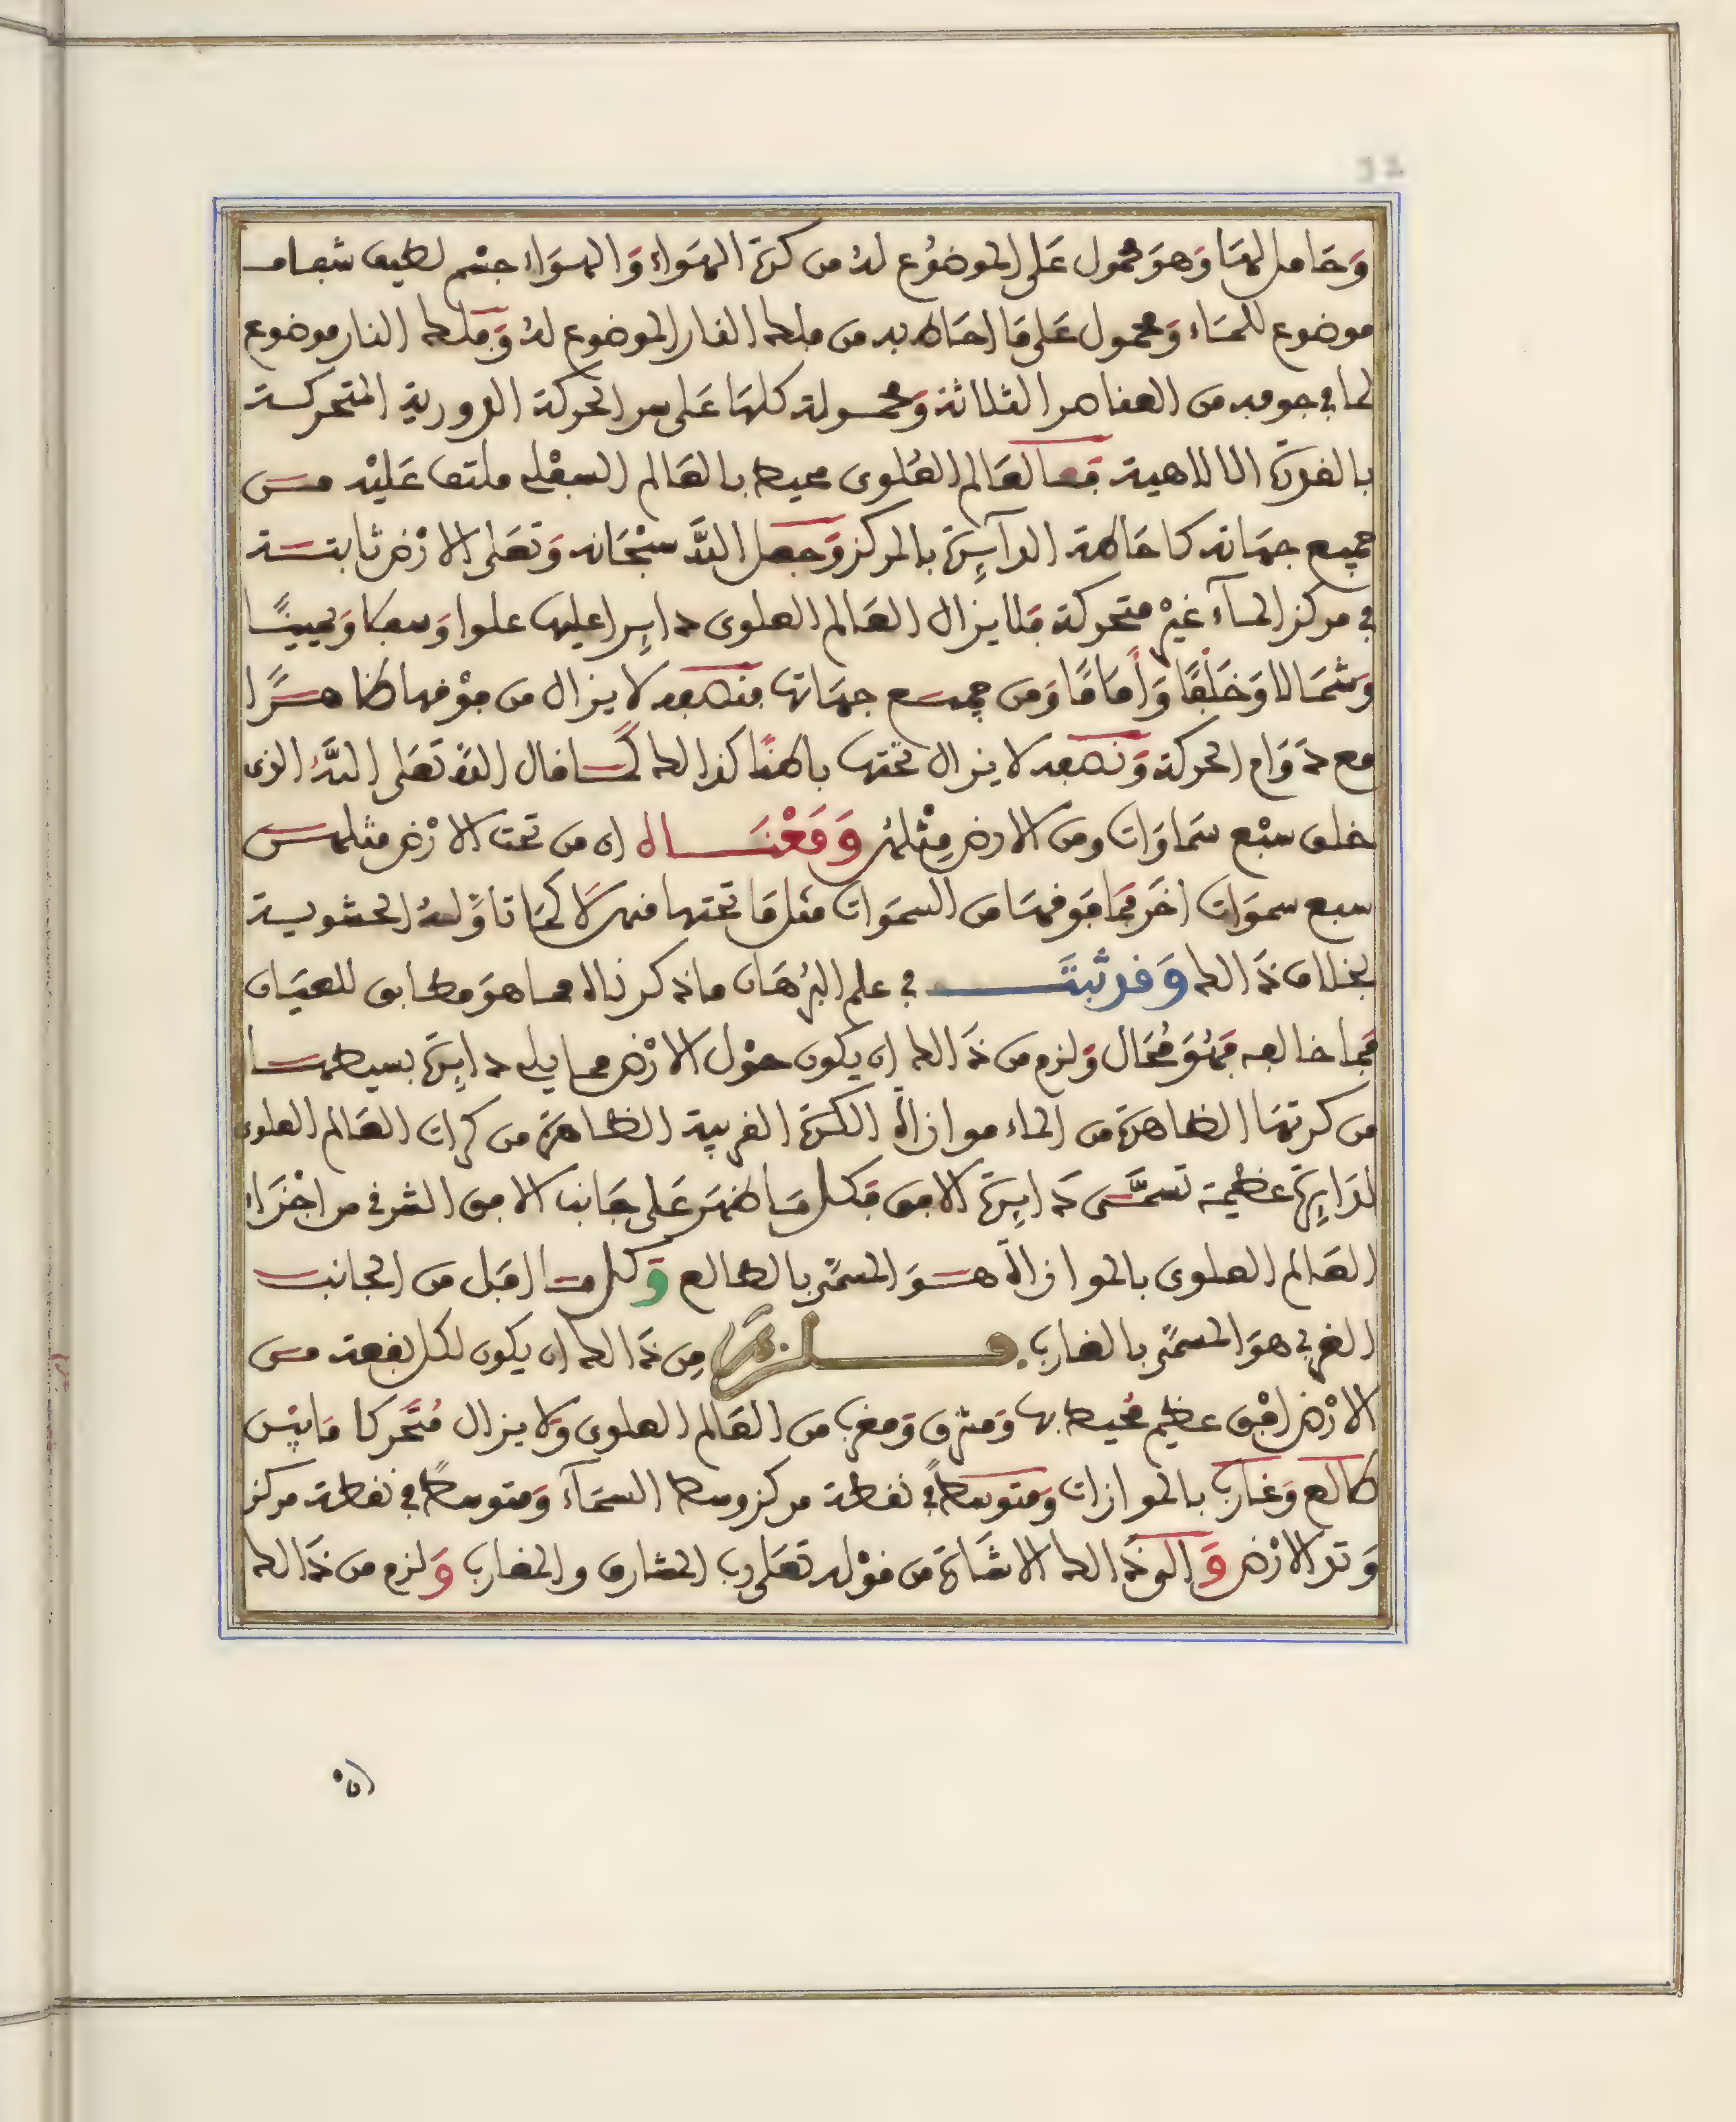 وَحَامل لهَا وَهوَ محمول عَلى الموضُوع لهُ من كرة الهوَاء وَالهوَاء جسْم لطيف شفاف
موضوع للمَاء وَمحمول عَلى مَا احَاط به من فلك النار الموضوع لهُ وَفلك النار موضوع
لما في جوفه من العناصر الثلاثة وَمحمولة كلهَا عَلى سر الحركة الدورية المتحركة
بالقدرة الالاهية فمعا لعَالم العُلوى محيط بالعَالم السفْلي ملتف عَليْه من
جميع جهاته كاحَاطة الدآيِرة بالمركز وَجعل اللَّه سبْحَانه وَتعَلى الارْض ثابتة
في مركز المآء غيْر متحركة فلا يزال العَالم العلوى دايِرا عليها علوا وَسفلا وَيمينًا
وَشمَالا وَخَلْفًا وَأمَامًا وَمن جميع جهَاتها فنصفه لا يزال من فوْقها ظاهرًا
مع دَوَام الحركة وَنصفه لا يزال تحْتها باطنًا كذالك كمَا قال اللّه تعَلى اللَّهُ الذى
خلق سبْع سَماوَات ومن الارض مِثْلهُن وَمَعْنَاه ان من تحت الارْض مثلهن
سبع سموَات اخَر فمَا فوقهَا من السموَات مثل مَا تحتها منهن لَا كمَا تاوَّلهُ الحشوية
بخلاف ذَالك وَقد ثبتَ في علم البُرهَان ماذكرناه مما هوَ مطابق للعيَان
فمَا خالفه فهُوَ مُحَال وَلزم من ذَالك ان يكون حوْل الارْض مما يلي دايِرة بسيطهَا
من كرتهَا الظاهرَة من الماء موازاة الكرة القريبة الظاهرَة من كرات العَالم العلوى
لدَايِرة عظيمة تسمَّى دَايِرة الافق فكل مَا ظهَر عَلى جَانب الافق الشرقي من اجْزَاء
العَالم العلوى بالموازاة هوَ المسمَّى بالطالع وَكل مَا اقبَل من الجانب
الغربي هوَ المسمَّى بالغارب فلزمَ مِن ذَالك ان يكون لكل بقعة من
الارْض افْق عظيم مُحيط بها وَمشرق وَمغرب من العَالم العلوى وَلا يزال مُتَحركا مَابيْن
طالع وَغارب بالموازات وَمتوسطًا في نقطة مركز وسط السمَآء وَمتوسطًا في نقطة مركز
وَتد الارْض وَالى ذَالك الاشَارة من قوْله تعَلى رب المشارق والمغارب وَلزم من ذَالك
ان